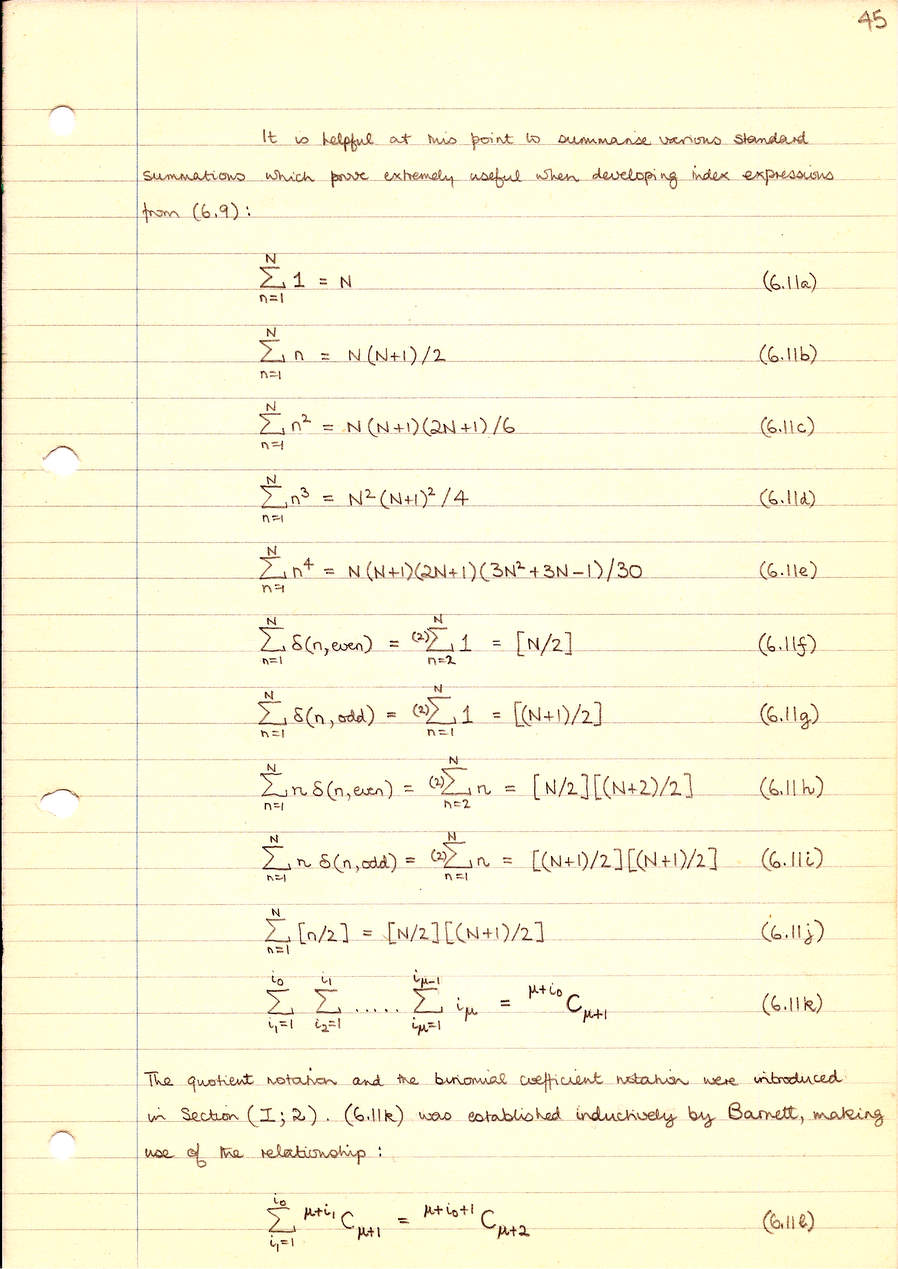 45
It is helpful at this point to summarise various standard
summations which prove extremely useful when developing index expressions
from (6.9) :
∑_{n=1}^{N} 1 = N (6.11a)
∑_{n=1}^{N} n = N(N+1)/2 (6.11b)
∑_{n=1}^{N} n² = N(N+1)(2N+1)/6 (6.11c)
∑_{n=1}^{N} n³ = N²(N+1)²/4 (6.11d)
∑_{n=1}^{N} n⁴ = N(N+1)(2N+1)(3N²+3N−1)/30 (6.11e)
∑_{n=1}^{N} δ(n,even) = ⁽²⁾∑_{n=2}^{N} 1 = [N/2] (6.11f)
∑_{n=1}^{N} δ(n,odd) = ⁽²⁾∑_{n=1}^{N} 1 = [(N+1)/2] (6.11g)
∑_{n=1}^{N} n δ(n,even) = ⁽²⁾∑_{n=2}^{N} n = [N/2][(N+2)/2] (6.11h)
∑_{n=1}^{N} n δ(n,odd) = ⁽²⁾∑_{n=1}^{N} n = [(N+1)/2][(N+1)/2] (6.11i)
∑_{n=1}^{N} [n/2] = [N/2][(N+1)/2] (6.11j)
∑_{i₁=1}^{i₀} ∑_{i₂=1}^{i₁} ..... ∑_{i_μ=1}^{i_{μ−1}} i_μ = ^{μ+i₀}C_{μ+1} (6.11k)
The quotient notation and the binomial coefficient notation were introduced
in Section (I;2). (6.11k) was established inductively by Barnett, making
use of the relationship :
∑_{i₁=1}^{i₀} ^{μ+i₁}C_{μ+1} = ^{μ+i₀+1}C_{μ+2} (6.11l)